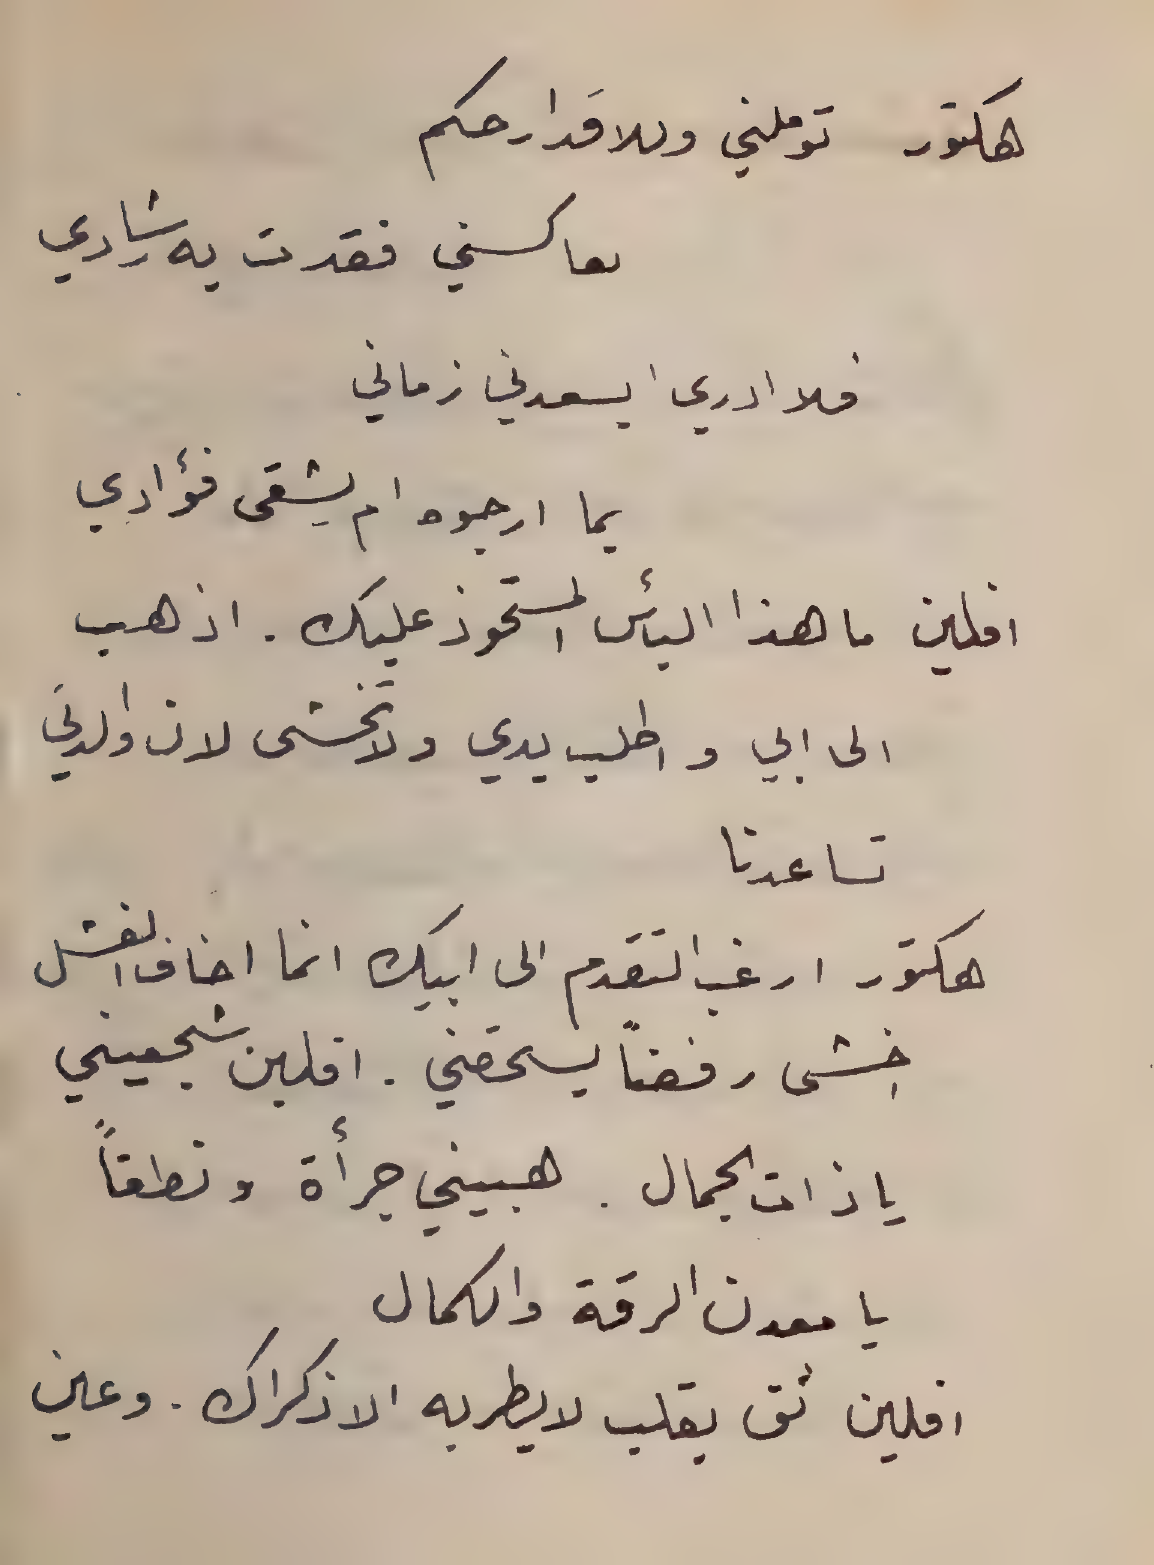 هكتور توملني وللاقدار حكم
يعاكسني فقدت به رشادي
فلا ادري ايسعدني زماني
بما ارجوه ام يشقى فؤادي
افلين ما هذا اليأس المستحوذ عليك . اذهب
الى ابي و اطلب يدي ولا تخشى لان والدتي
تساعدنا
هكتور ارغب التقدم الى ابيك انما اخاف الفشل
اخشى رفضاً يسحقني . افلين شجعيني
يا ذات الجمال . هبيني جرأة ونطقاً
يا معدن الرقة والكمال
افلين ثق بقلب لا يطربه الا ذكراك . وعين